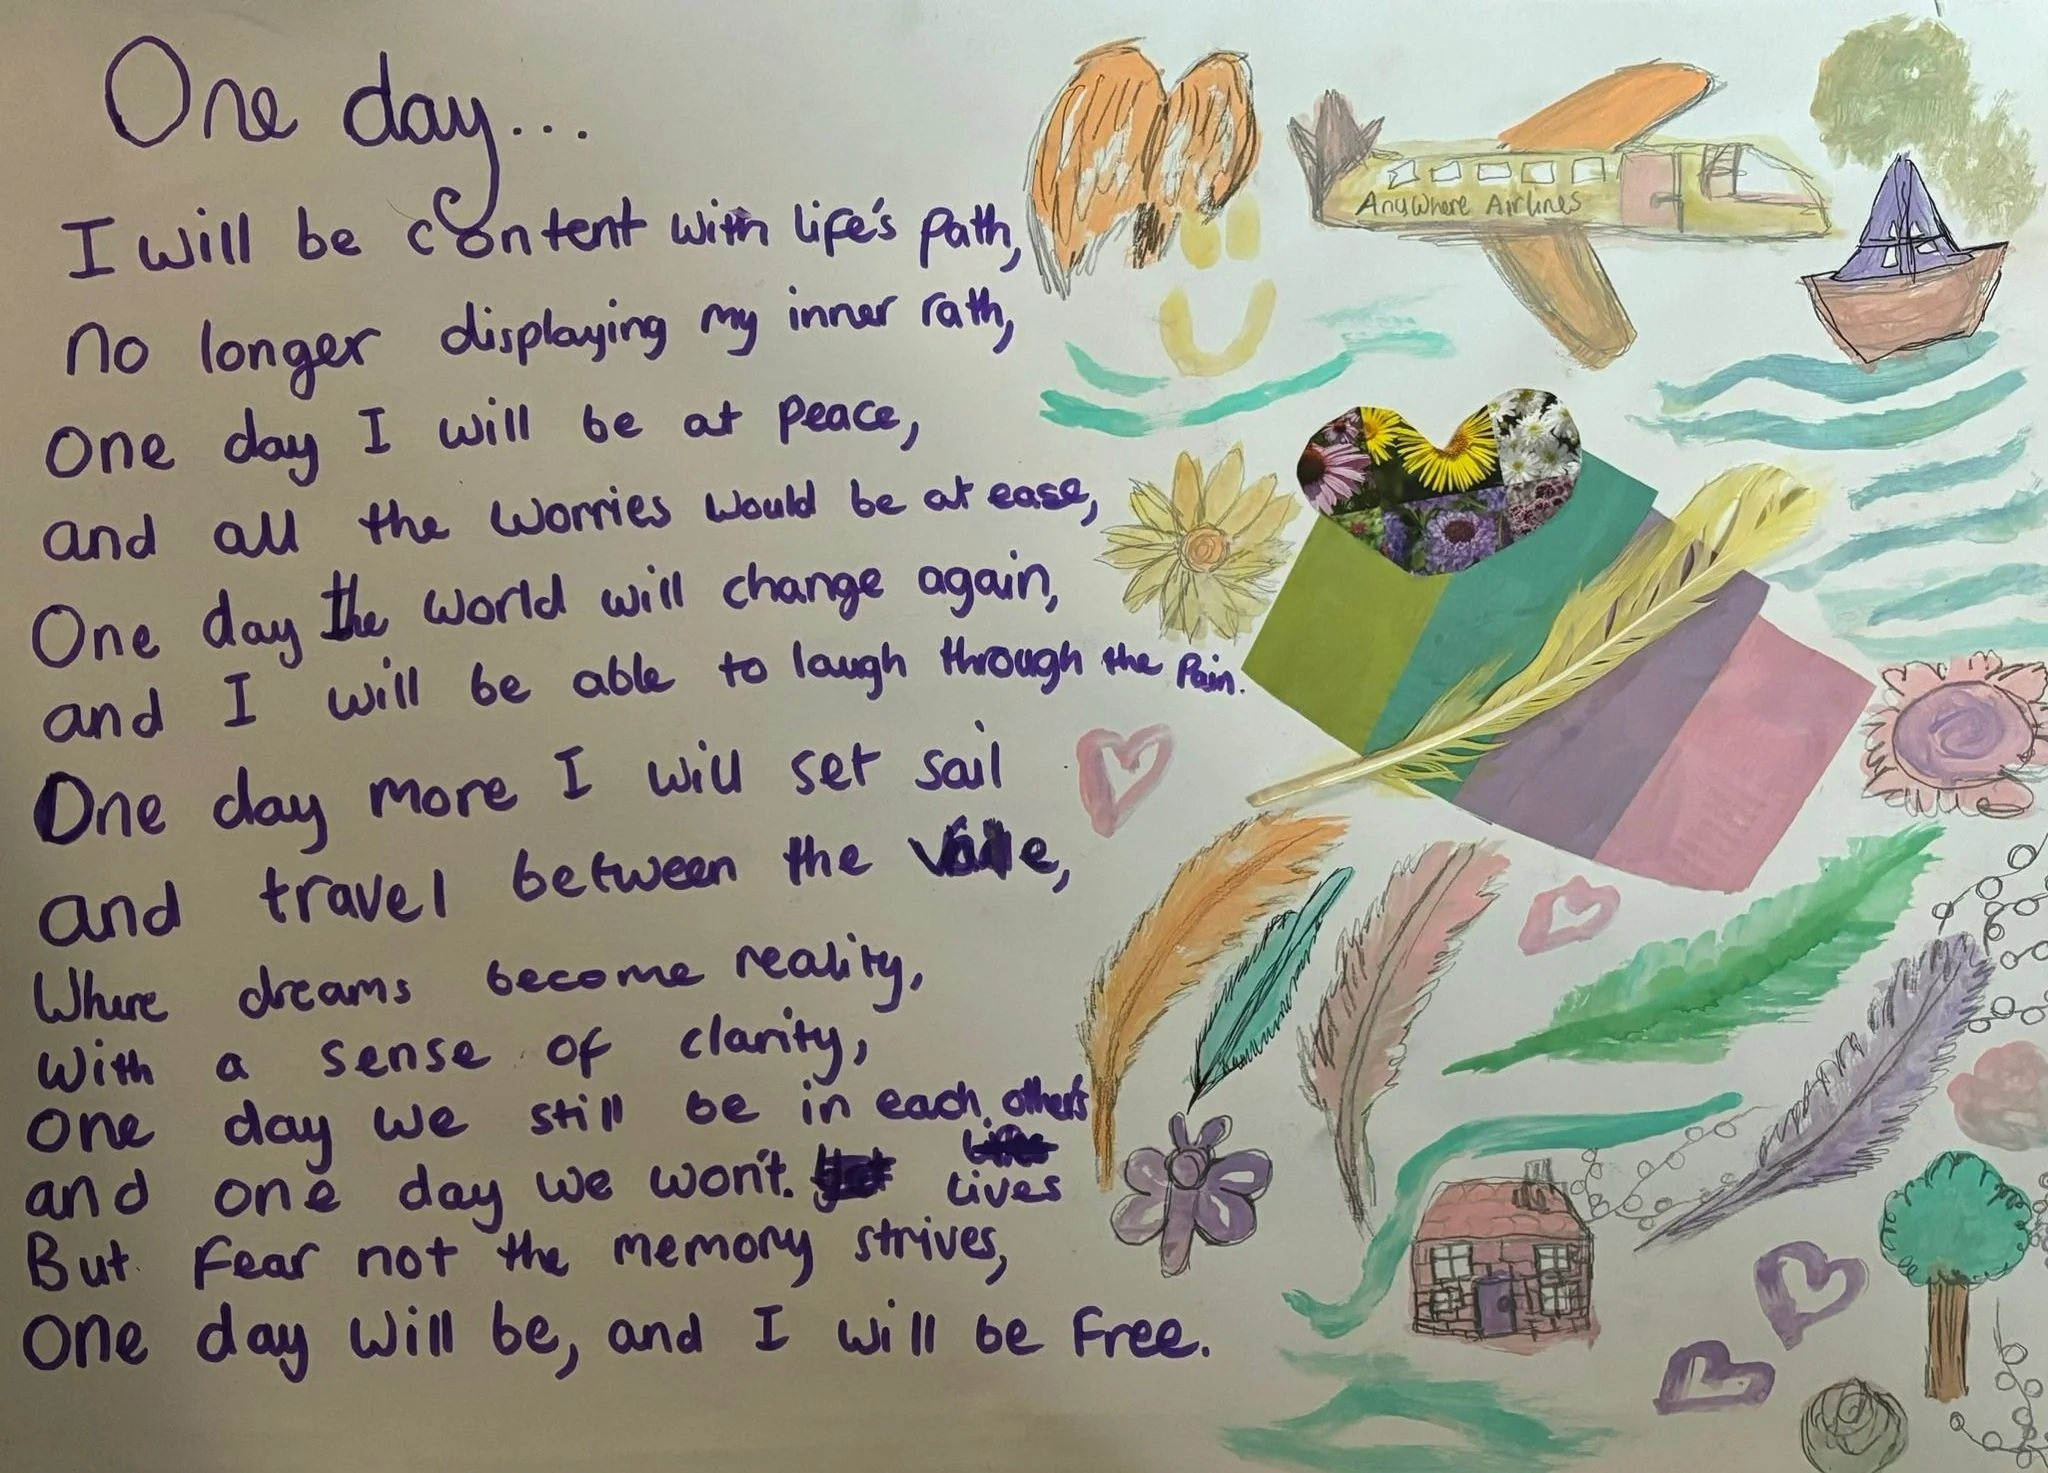 One day...
I will be content with life's path,
no longer displaying my inner rath,
One day I will be at peace,
and all the worries would be at ease,
One day the world will change again,
and I will be able to laugh through the pain.
One day more I will set sail
and travel between the vaile,
Where dreams become reality,
With a sense of clarity,
One day we still be in each other's
lives
and one day we won't.
But fear not the memory strives,
One day will be, and I will be free.
Anywhere Airlines